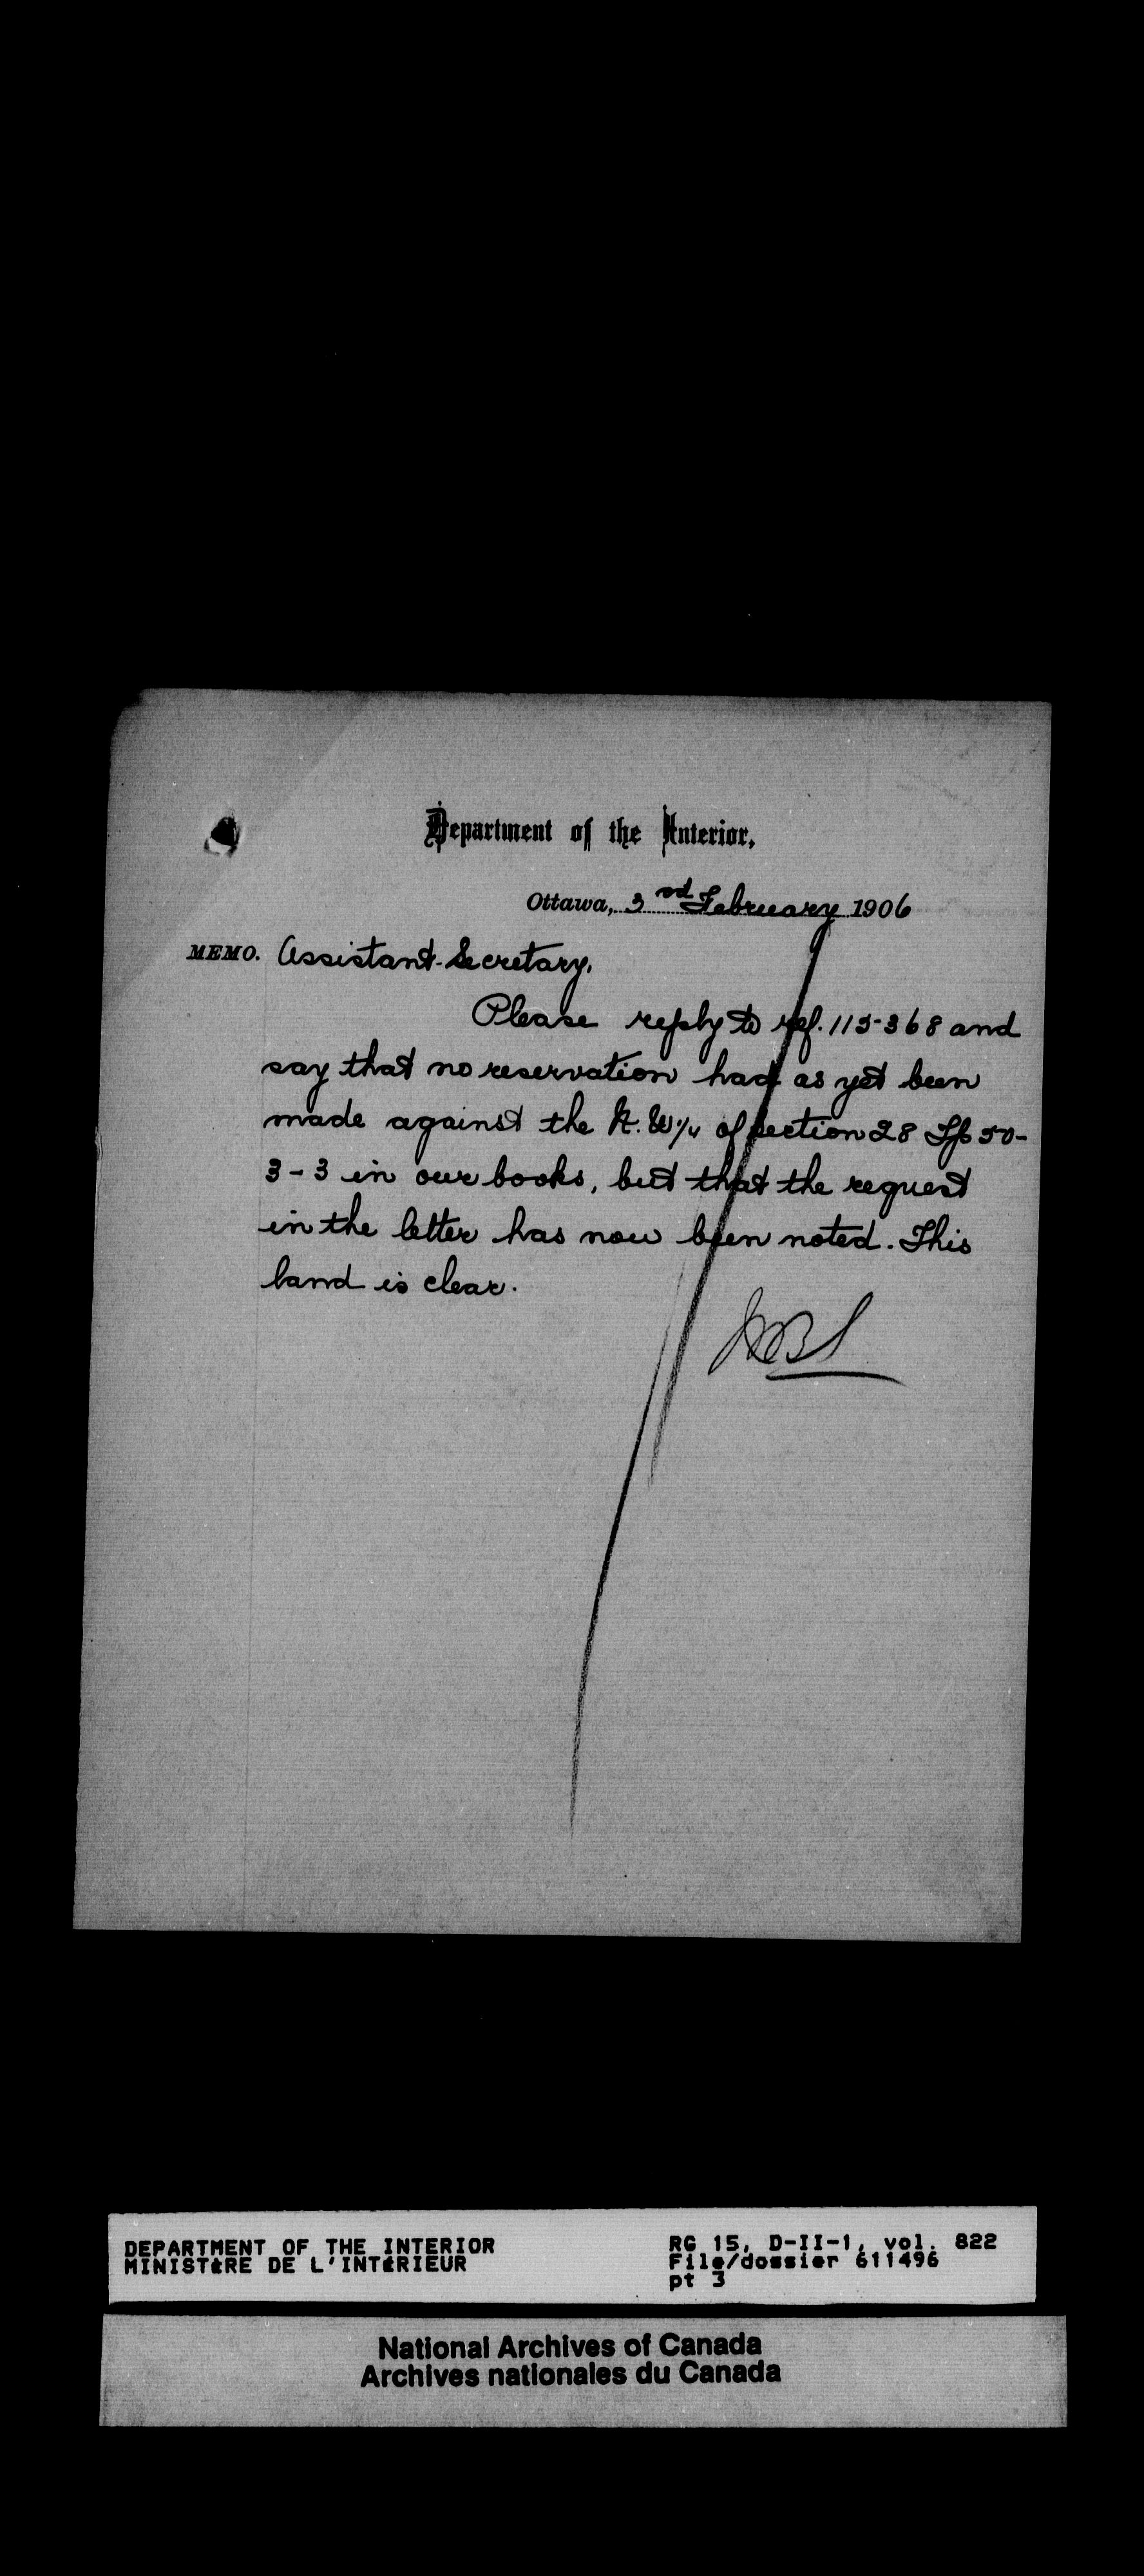 Department of the Interior,
Ottawa, 3rd February 1906
MEMO. Assistant Secretary.
Please reply to ref. 115368 and
say that no reservation had as yet been
made against the N.W.1/4 of section 28 Tp 50-
3-3 in our books, but that the request
in the letter has now been noted. This
land is clear.
DEPARTMENT OF THE INTERIOR
MINISTÈRE DE L'INTÉRIEUR
RG 15, D-II-1, vol. 822
File/dossier 611496
pt 3
National Archives of Canada
Archives nationales du Canada